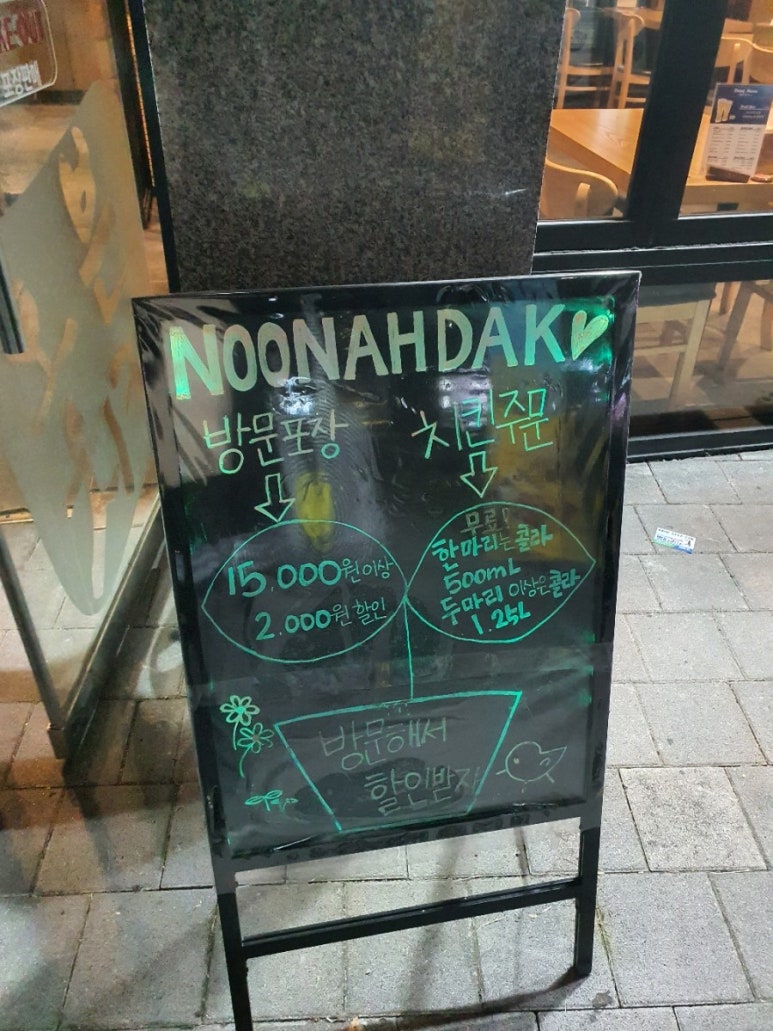 포장판매
NOONAHDAK
방문포장
치킨주문
15,000원이상
2,000원 할인
무료!
한마리는콜라
500mL
두마리 이상은콜라
1.25L
방문해서
할인받자